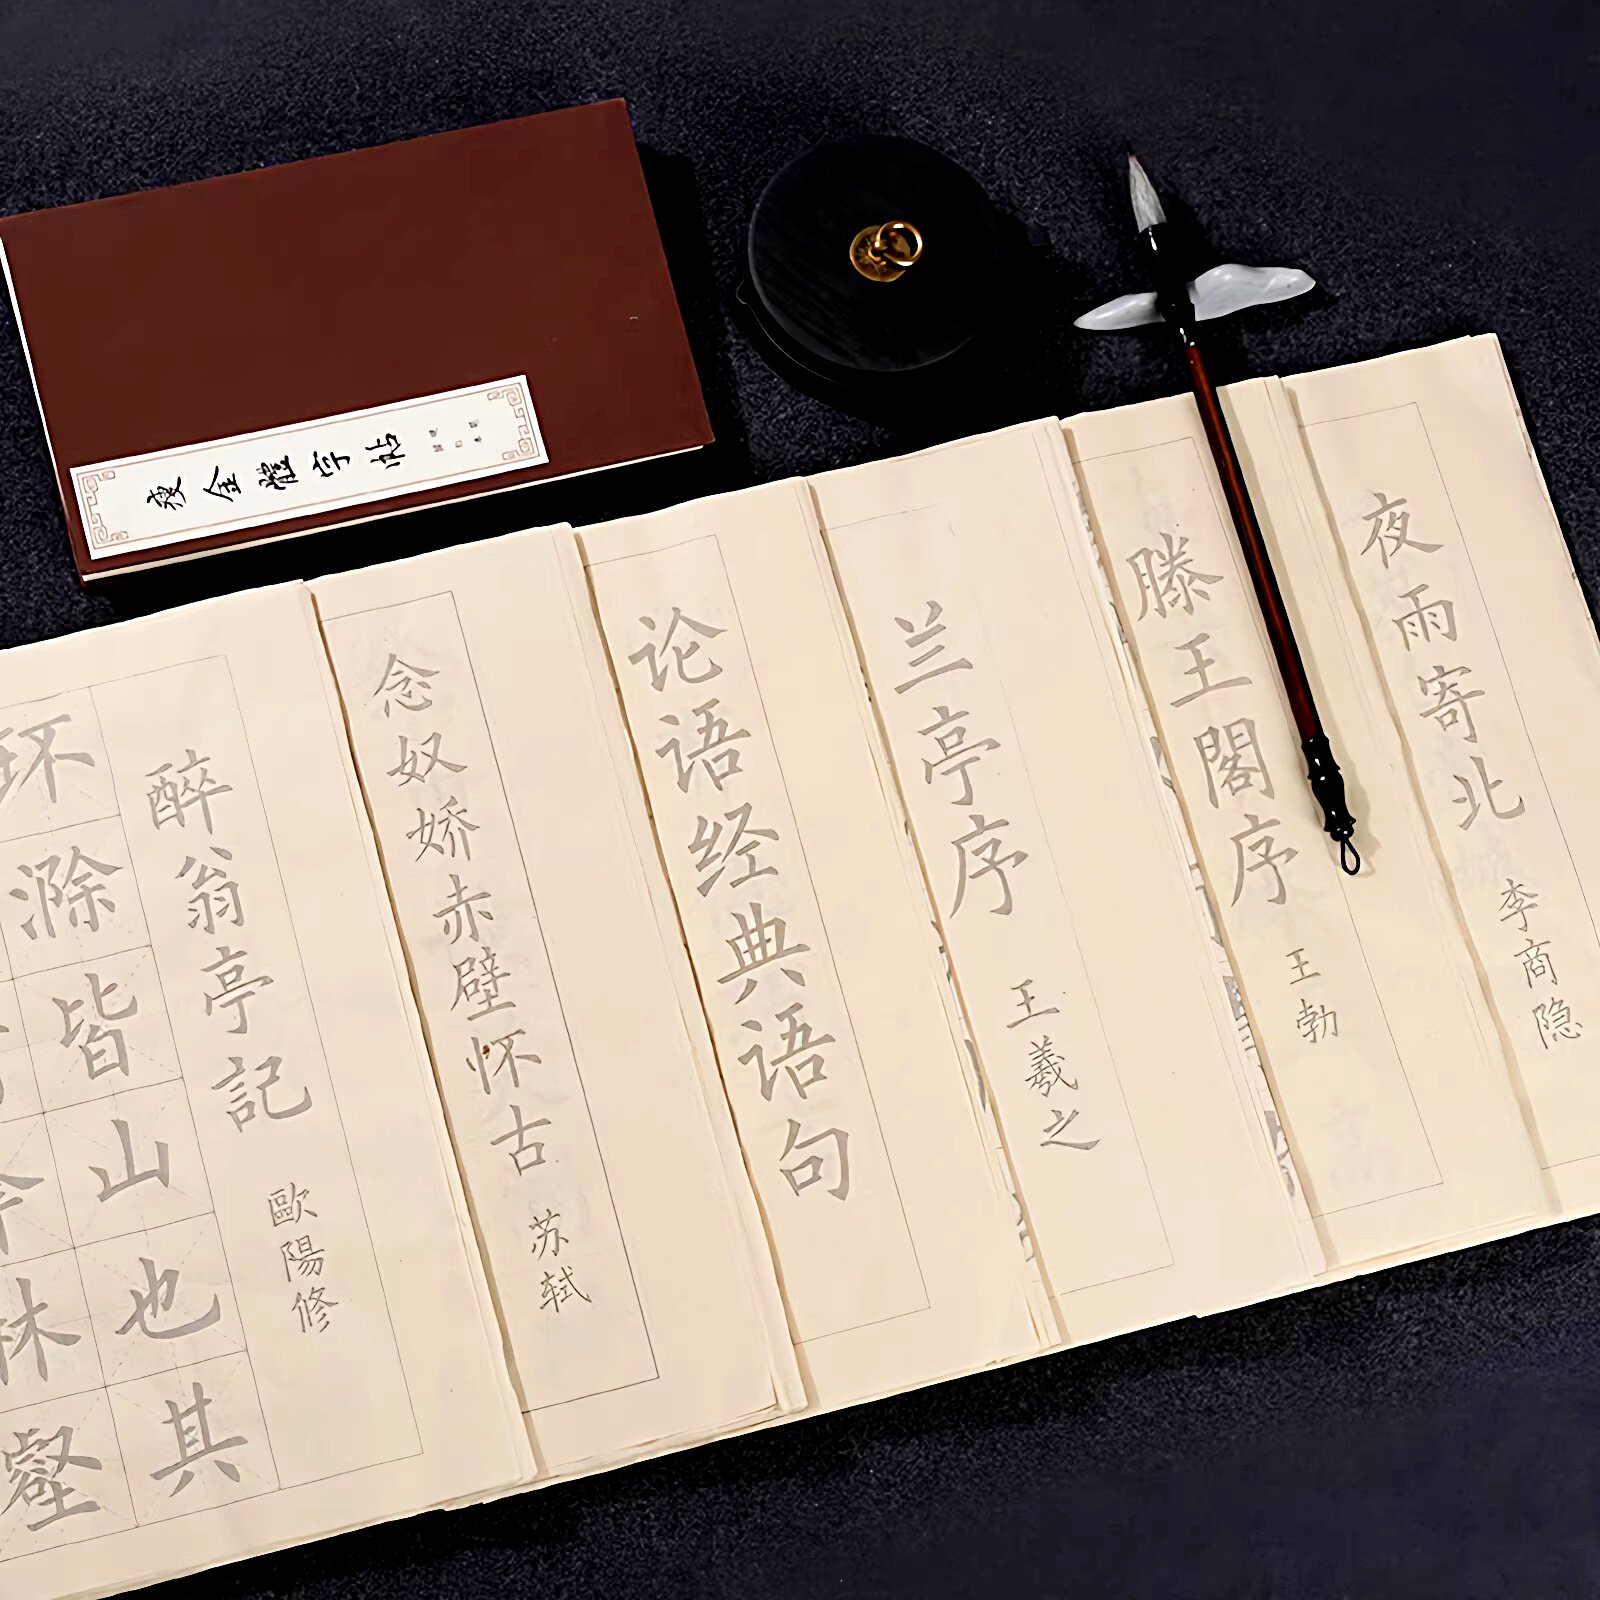 瘦金體字帖
夜雨寄北 李商隐
滕王閣序 王勃
兰亭序 王羲之
论语经典语句
念奴娇赤壁怀古 苏轼
醉翁亭記 歐陽修
环滁皆山也其
林壑